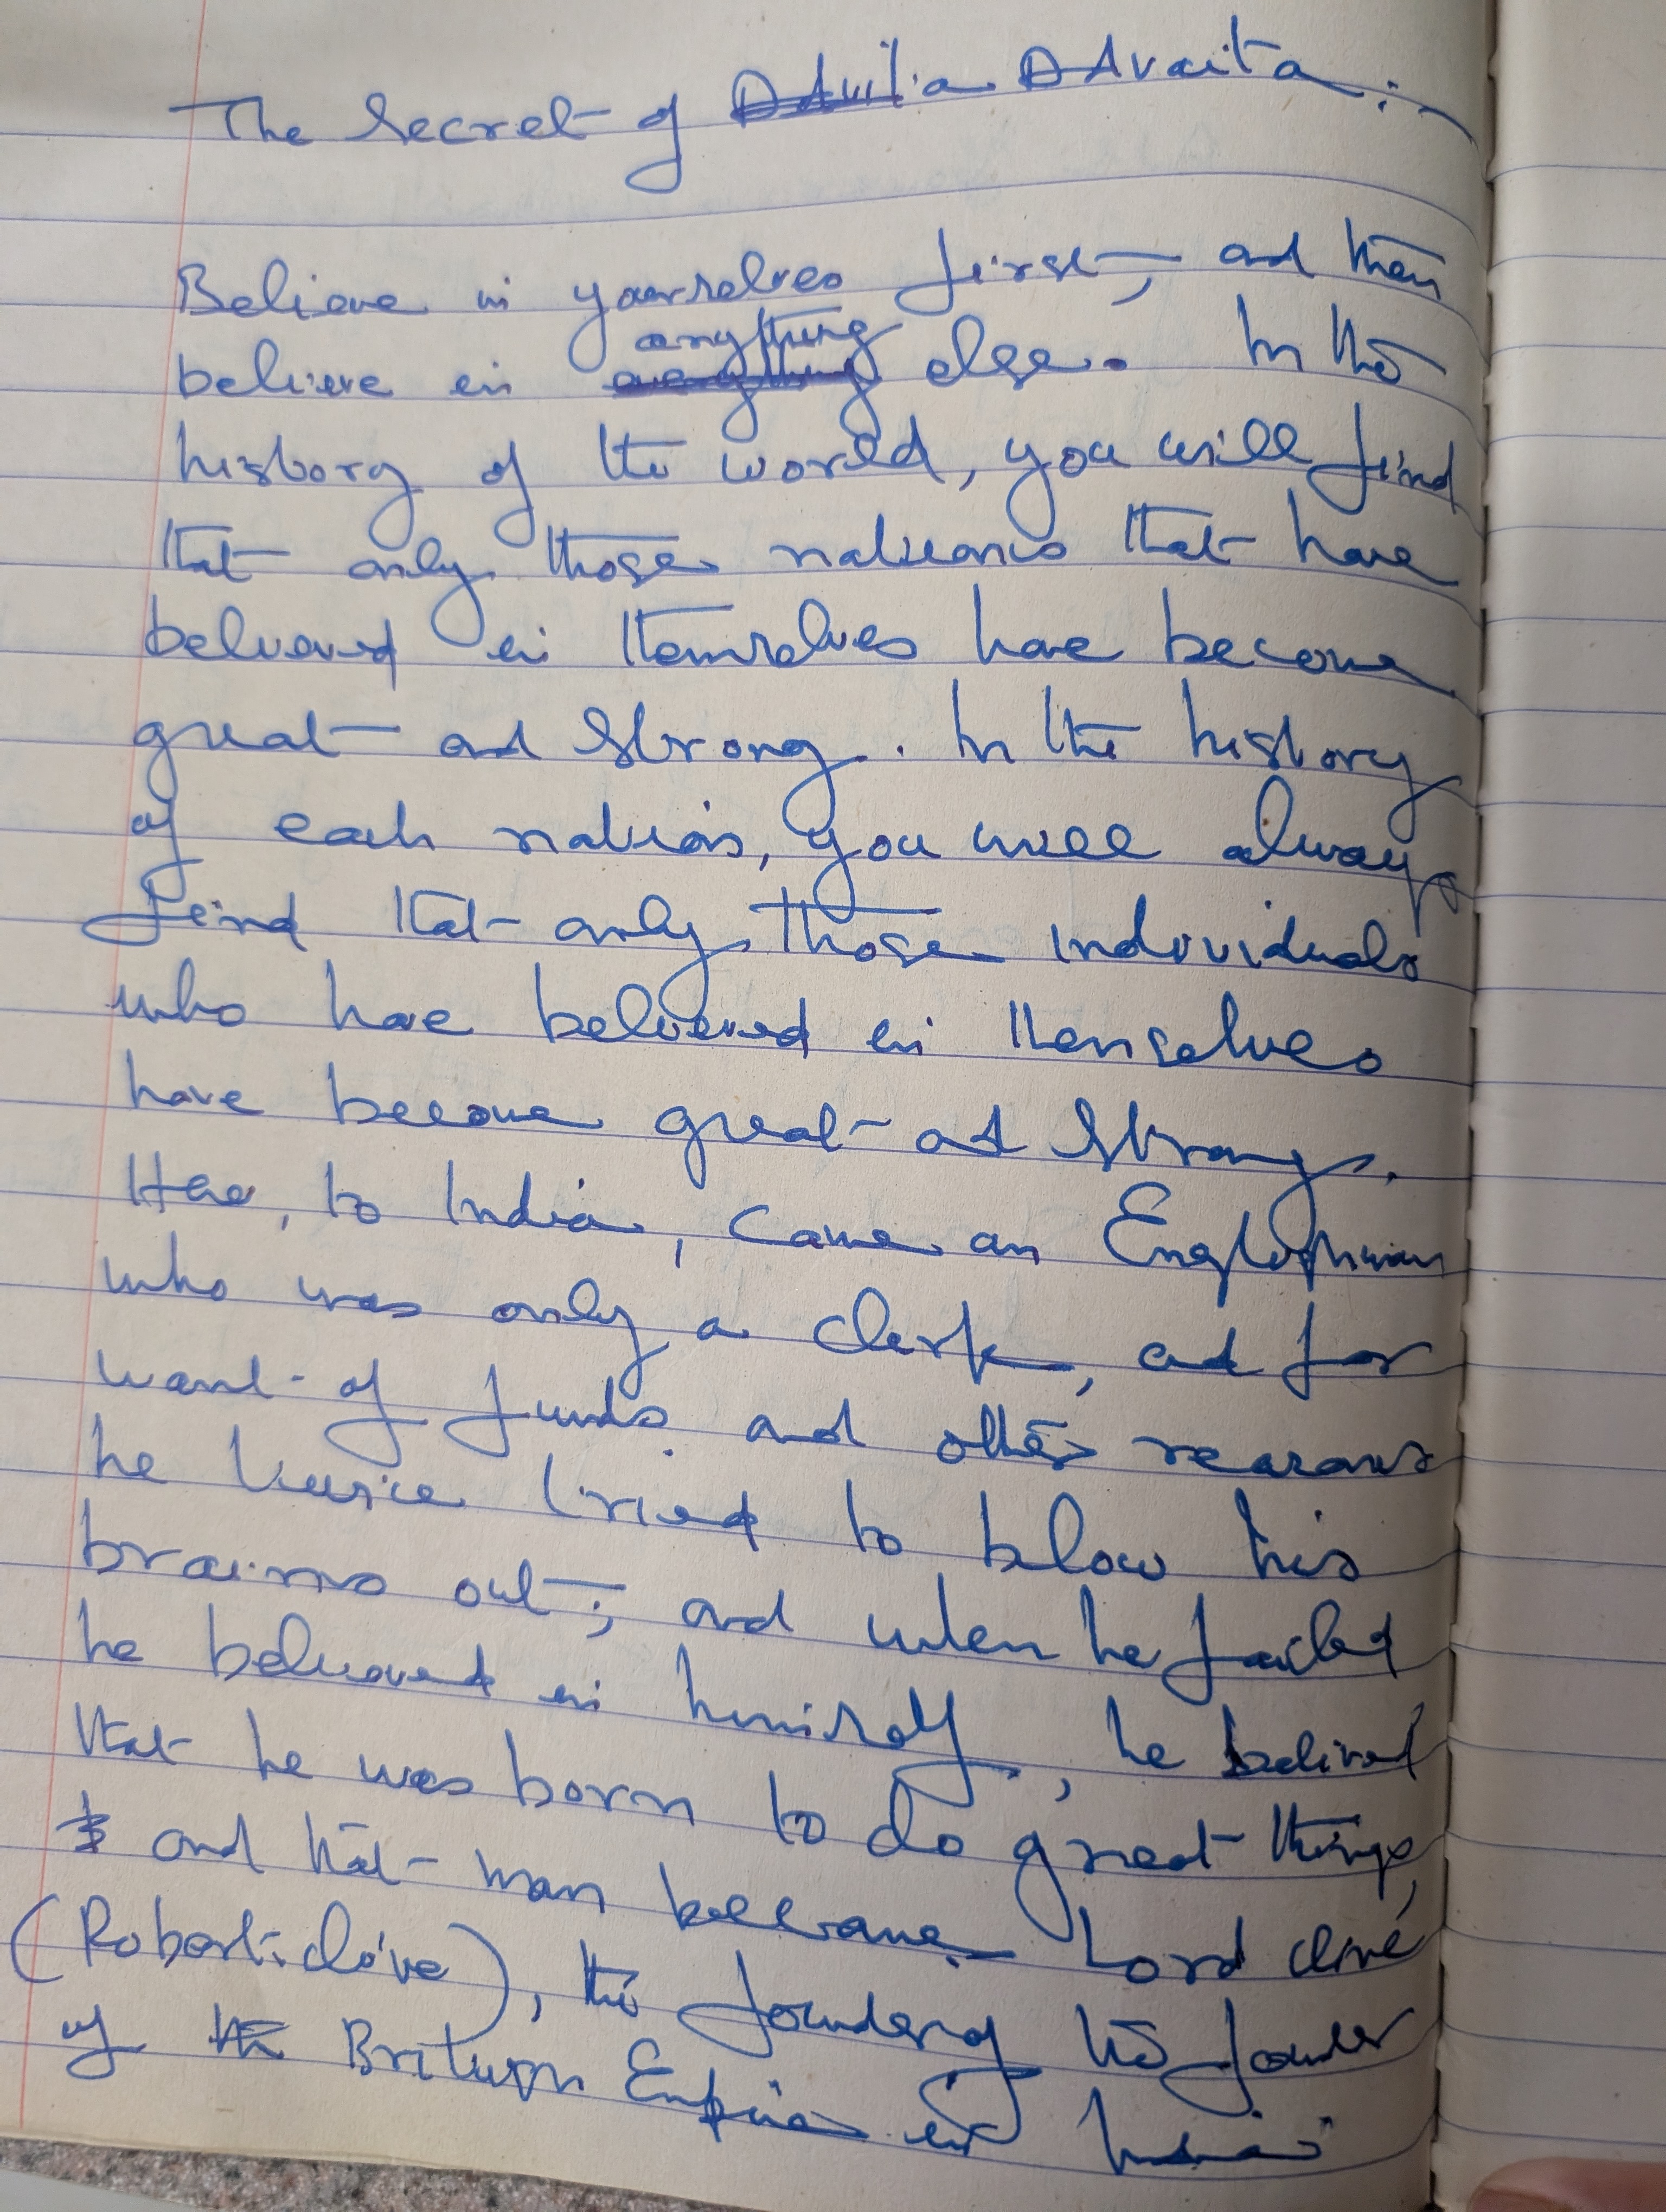 The Secret of Advaita :-
Believe in yourselves first, and then
believe in anything else. In the
history of the world, you will find
that only those nations that have
believed in themselves have become
great and strong. In the history
of each nation, you will always
find that only those individuals
who have believed in themselves
have become great and strong.
Here, to India, came an Englishman
who was only a clerk, and for
want of funds and other reasons
he twice tried to blow his
brains out; and when he failed
he believed in himself, he belived
that he was born to do great things,
and that man became Lord Clive
(Robert Clive), the founder of the founder
of the British Empire in India